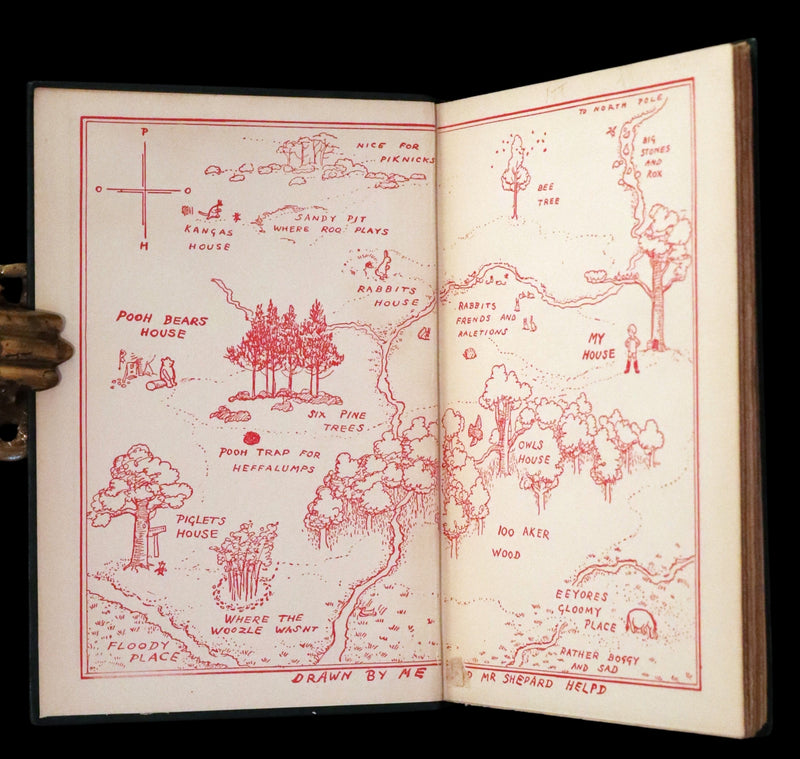 TO NORTH POLE
P
O O
H
NICE FOR
PIKNICKS
BIG
STONES
AND
ROX
BEE
TREE
KANGAS
HOUSE
SANDY PIT
WHERE ROO PLAYS
RABBITS
HOUSE
RABBITS
FRENDS AND
RALETIONS
POOH BEARS
HOUSE
MY
HOUSE
SIX PINE
TREES
POOH TRAP FOR
HEFFALUMPS
OWLS
HOUSE
PIGLETS
HOUSE
100 AKER
WOOD
WHERE THE
WOOZLE WASNT
EEYORES
GLOOMY
PLACE
FLOODY
PLACE
RATHER BOGGY
AND SAD
DRAWN BY ME D MR SHEPARD HELPD